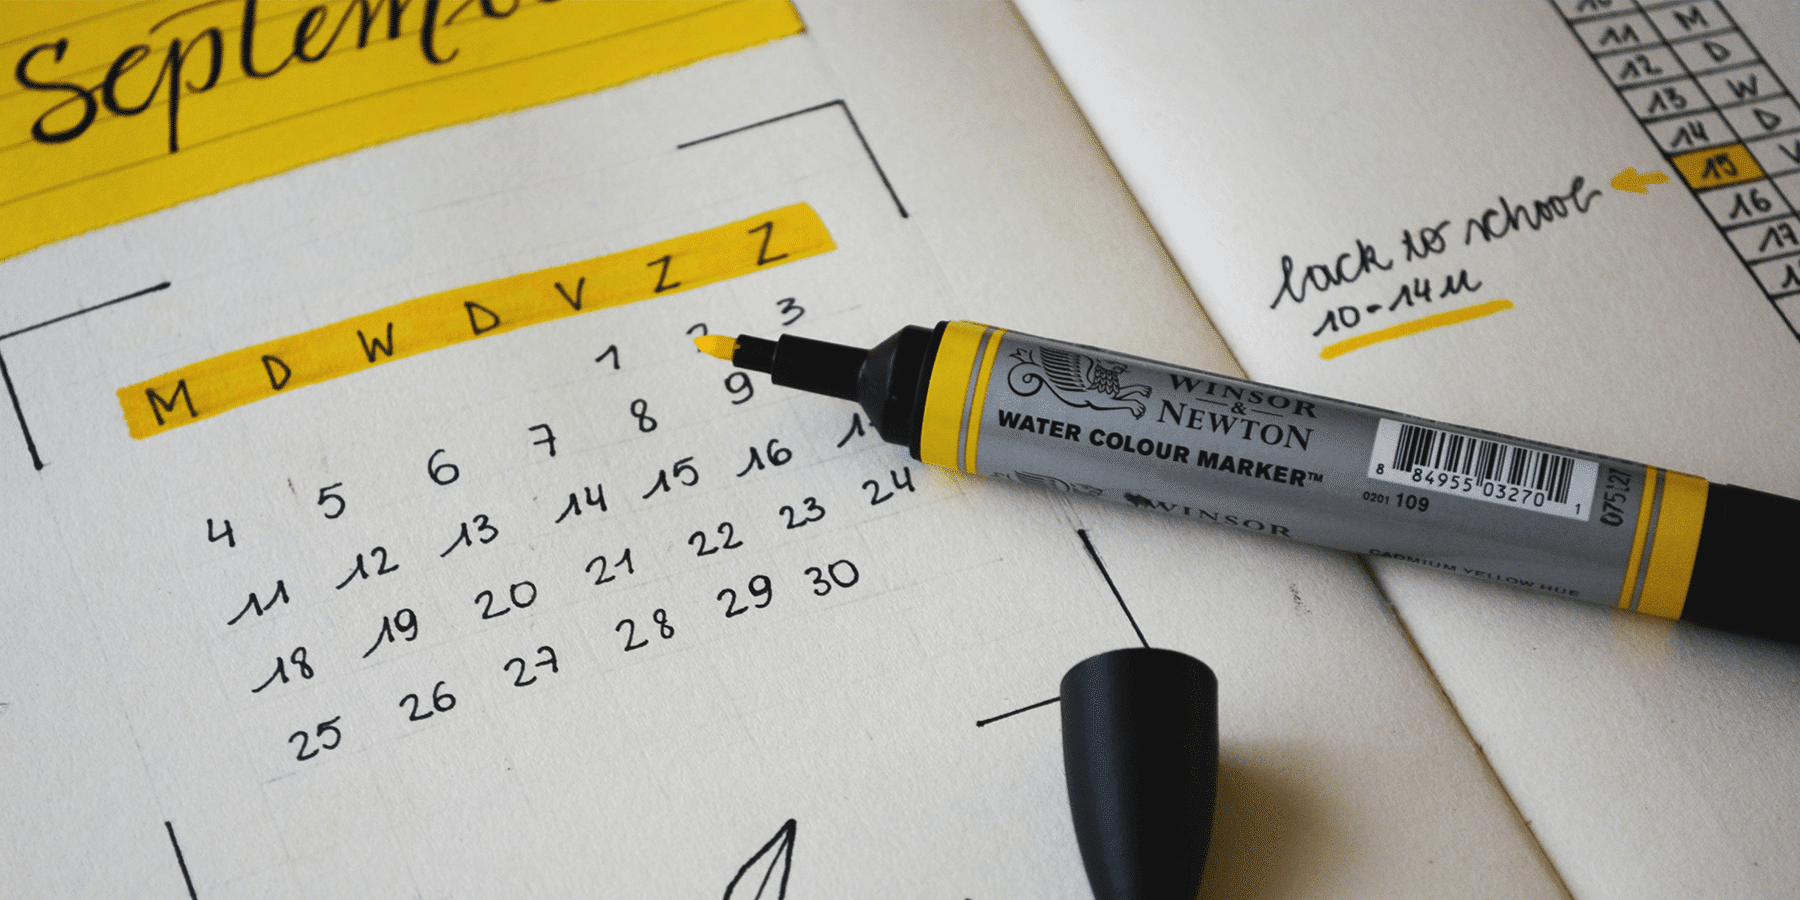 Septem
M D W D V Z Z
1 2 3
4 5 6 7 8 9
11 12 13 14 15 16
18 19 20 21 22 23 24
25 26 27 28 29 30
WINSOR
&
NEWTON
WATER COLOUR MARKER™
8 84955 03270 1
0201 109
075127
WINSOR
CADMIUM YELLOW HUE
back to school
10-14u
10 M
11 D
12 W
13 D
14 V
15
16
17